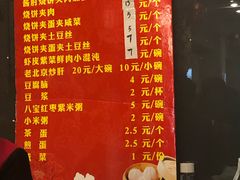 烧饼夹肉 元/个
烧饼夹蛋夹咸菜 元/个
烧饼夹土豆丝 元/个
烧饼夹蛋夹土豆丝 7 元/个
虾皮紫菜鲜肉小混沌 元/碗
老北京炒肝 20元/大碗 10元/小碗
豆腐脑 4 元/碗
豆浆 2 元/杯
八宝红枣紫米粥 5 元/碗
小米粥 2 元/碗
茶蛋 2.5 元/个
煎蛋 2.5 元/个
咸菜 1 元/份